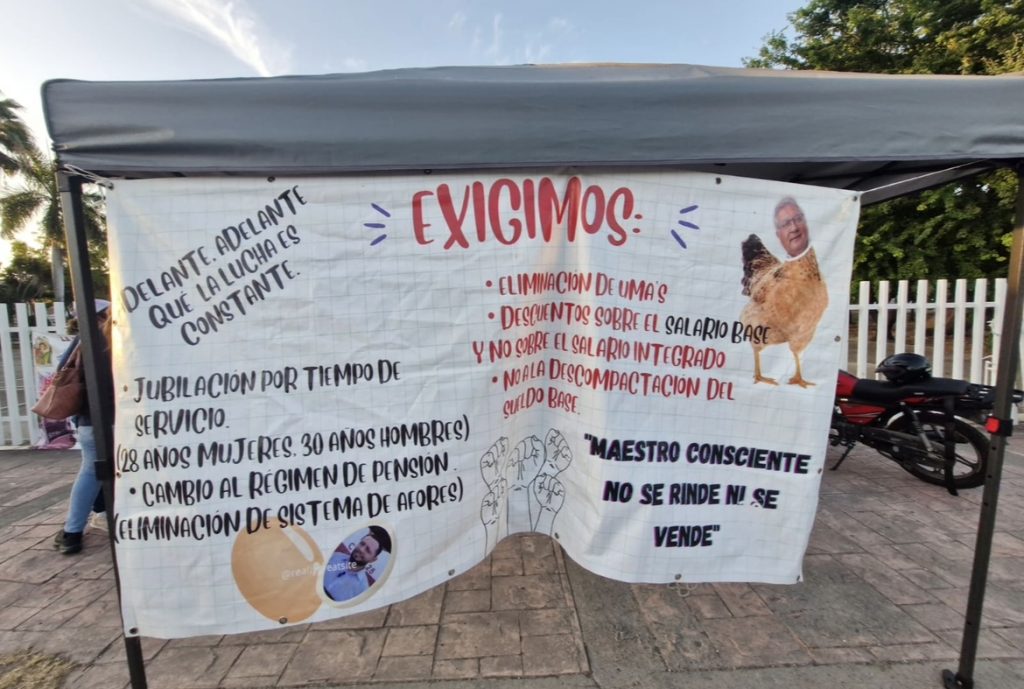 DELANTE. ADELANTE
QUE LA LUCHA ES
CONSTANTE.
EXIGIMOS:
• ELIMINACIÓN DE UMA'S
• DESCUENTOS SOBRE EL SALARIO BASE
Y NO SOBRE EL SALARIO INTEGRADO
• NO A LA DESCOMPACTACIÓN DEL
SUELDO BASE.
• JUBILACIÓN POR TIEMPO DE
SERVICIO.
(28 AÑOS MUJERES. 30 AÑOS HOMBRES)
• CAMBIO AL RÉGIMEN DE PENSIÓN.
(ELIMINACIÓN DE SISTEMA DE AFORES)
"MAESTRO CONSCIENTE
NO SE RINDE NI SE
VENDE"